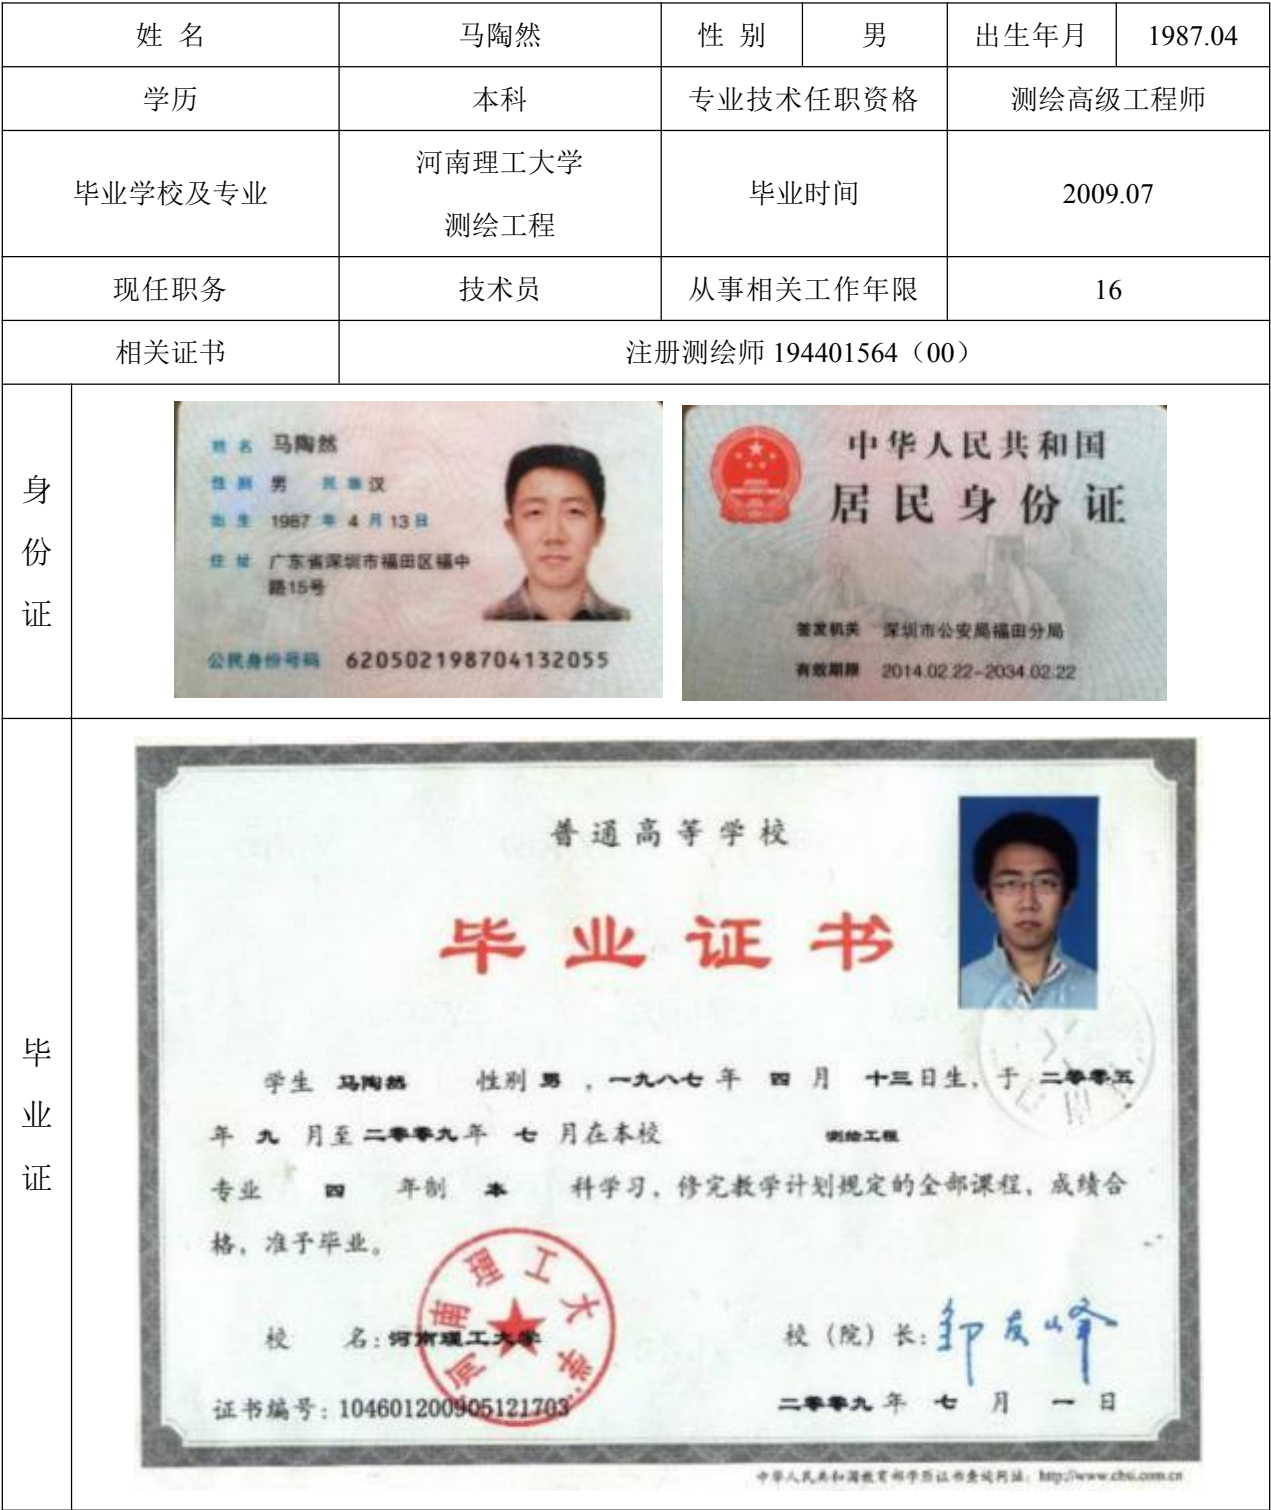 姓 名 马陶然 性 别 男 出生年月 1987.04
学历 本科 专业技术任职资格 测绘高级工程师
毕业学校及专业 河南理工大学 测绘工程 毕业时间 2009.07
现任职务 技术员 从事相关工作年限 16
相关证书 注册测绘师 194401564（00）
身份证
姓 名 马陶然
性 别 男 民 族 汉
出 生 1987 年 4 月 13 日
住 址 广东省深圳市福田区福中
路15号
公民身份号码 620502198704132055
中华人民共和国
居民身份证
签发机关 深圳市公安局福田分局
有效期限 2014.02.22-2034.02.22
毕业证
普通高等学校
毕业证书
学生 马陶然 性别 男 ，一九八七 年 四 月 十三日生，于 二零零五
年 九 月至 二零零九 年 七 月在本校 测绘工程
专业 四 年制 本 科学习，修完教学计划规定的全部课程，成绩合
格，准予毕业。
河南理工大学
校 名：河南理工大学 校（院）长：邹友峰
证书编号：104601200905121703 二零零九 年 七 月 一 日
中华人民共和国教育部学历证书查询网址：http://www.chsi.com.cn